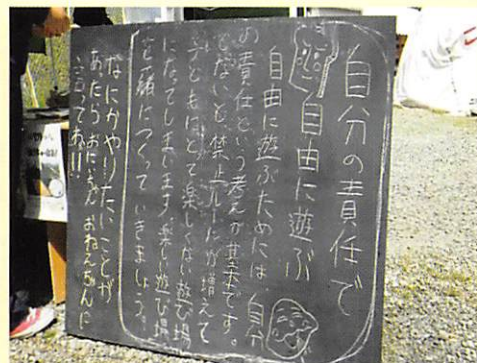 自分の責任で
自由に遊ぶ
自由に遊ぶためには 自分
の責任という考えが基本です。
でないと、禁止ルールが増えて
子どもにとって楽しくない遊び場
になってしまいます。楽しい遊び場
を一緒につくっていきましょう。
なにかやりたいことが
あったらおにいちゃんおねえちゃんに
言ってね!!